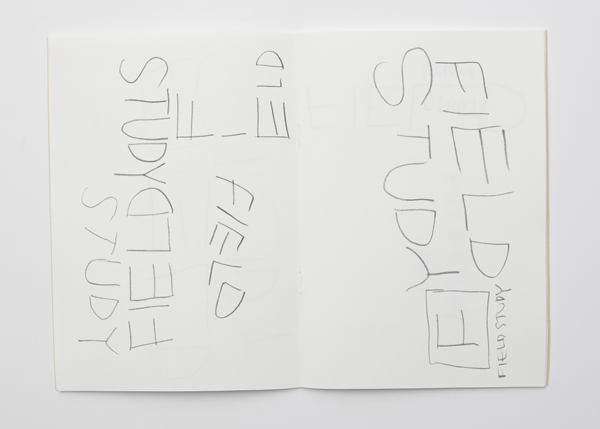 STUDY
FIELD
STUDY
FIELD
FIELD
STUDY
FIELD STUDY